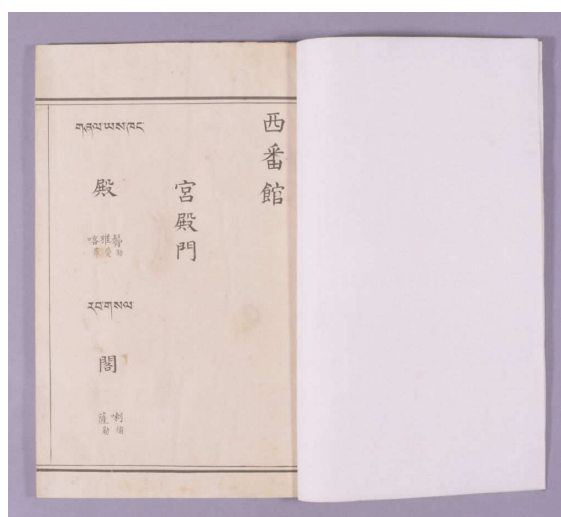 西番館
宮殿門
གཞལ་ཡས་ཁང་
殿
རབ་གསལ་
閣
薩勒